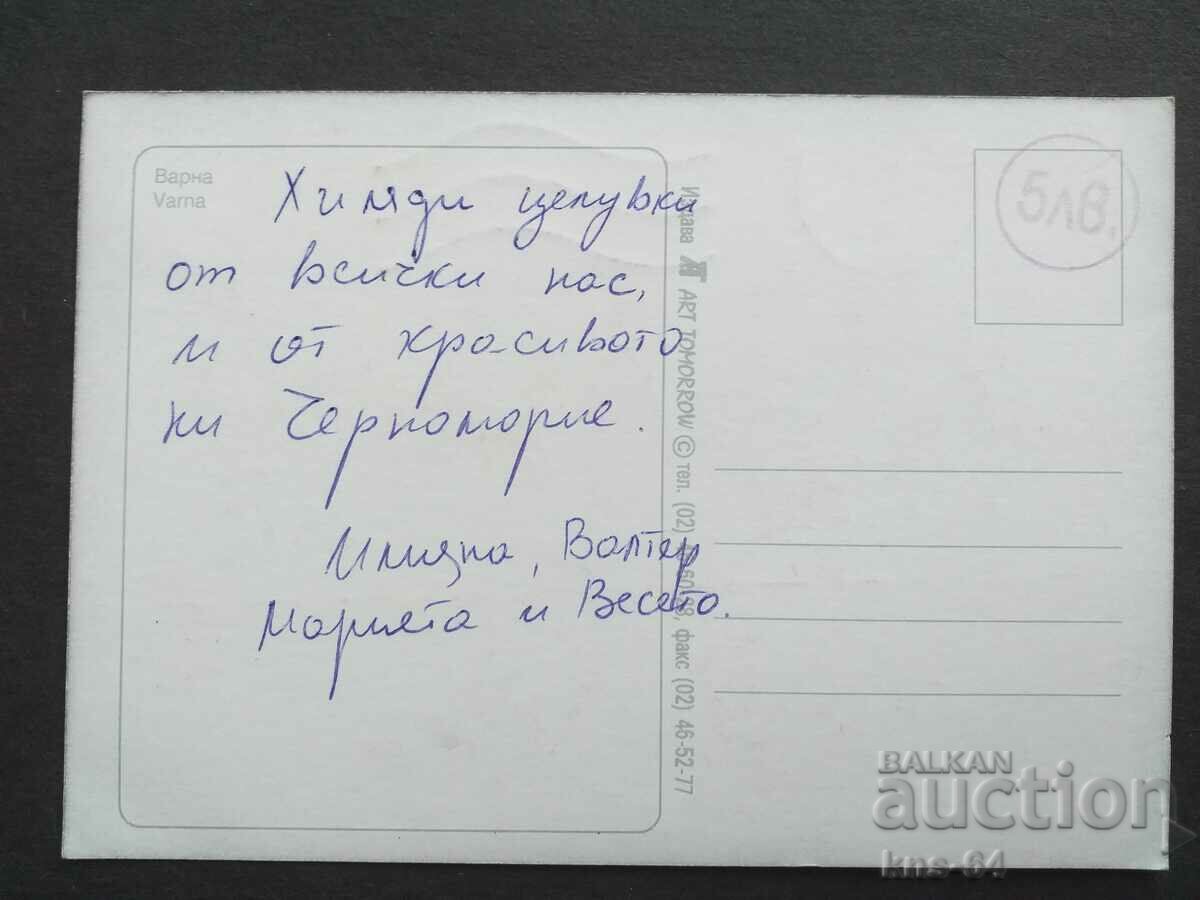 Варна
Varna
Хиляди целувки
от всички нас,
и от красивото
ни Черноморие.
Илияна, Валтер
Мариета и Весето.
Издава AT ART TOMORROW © тел. (02) факс (02) 46-52-77
5лв.
BALKAN
auction
kns-64